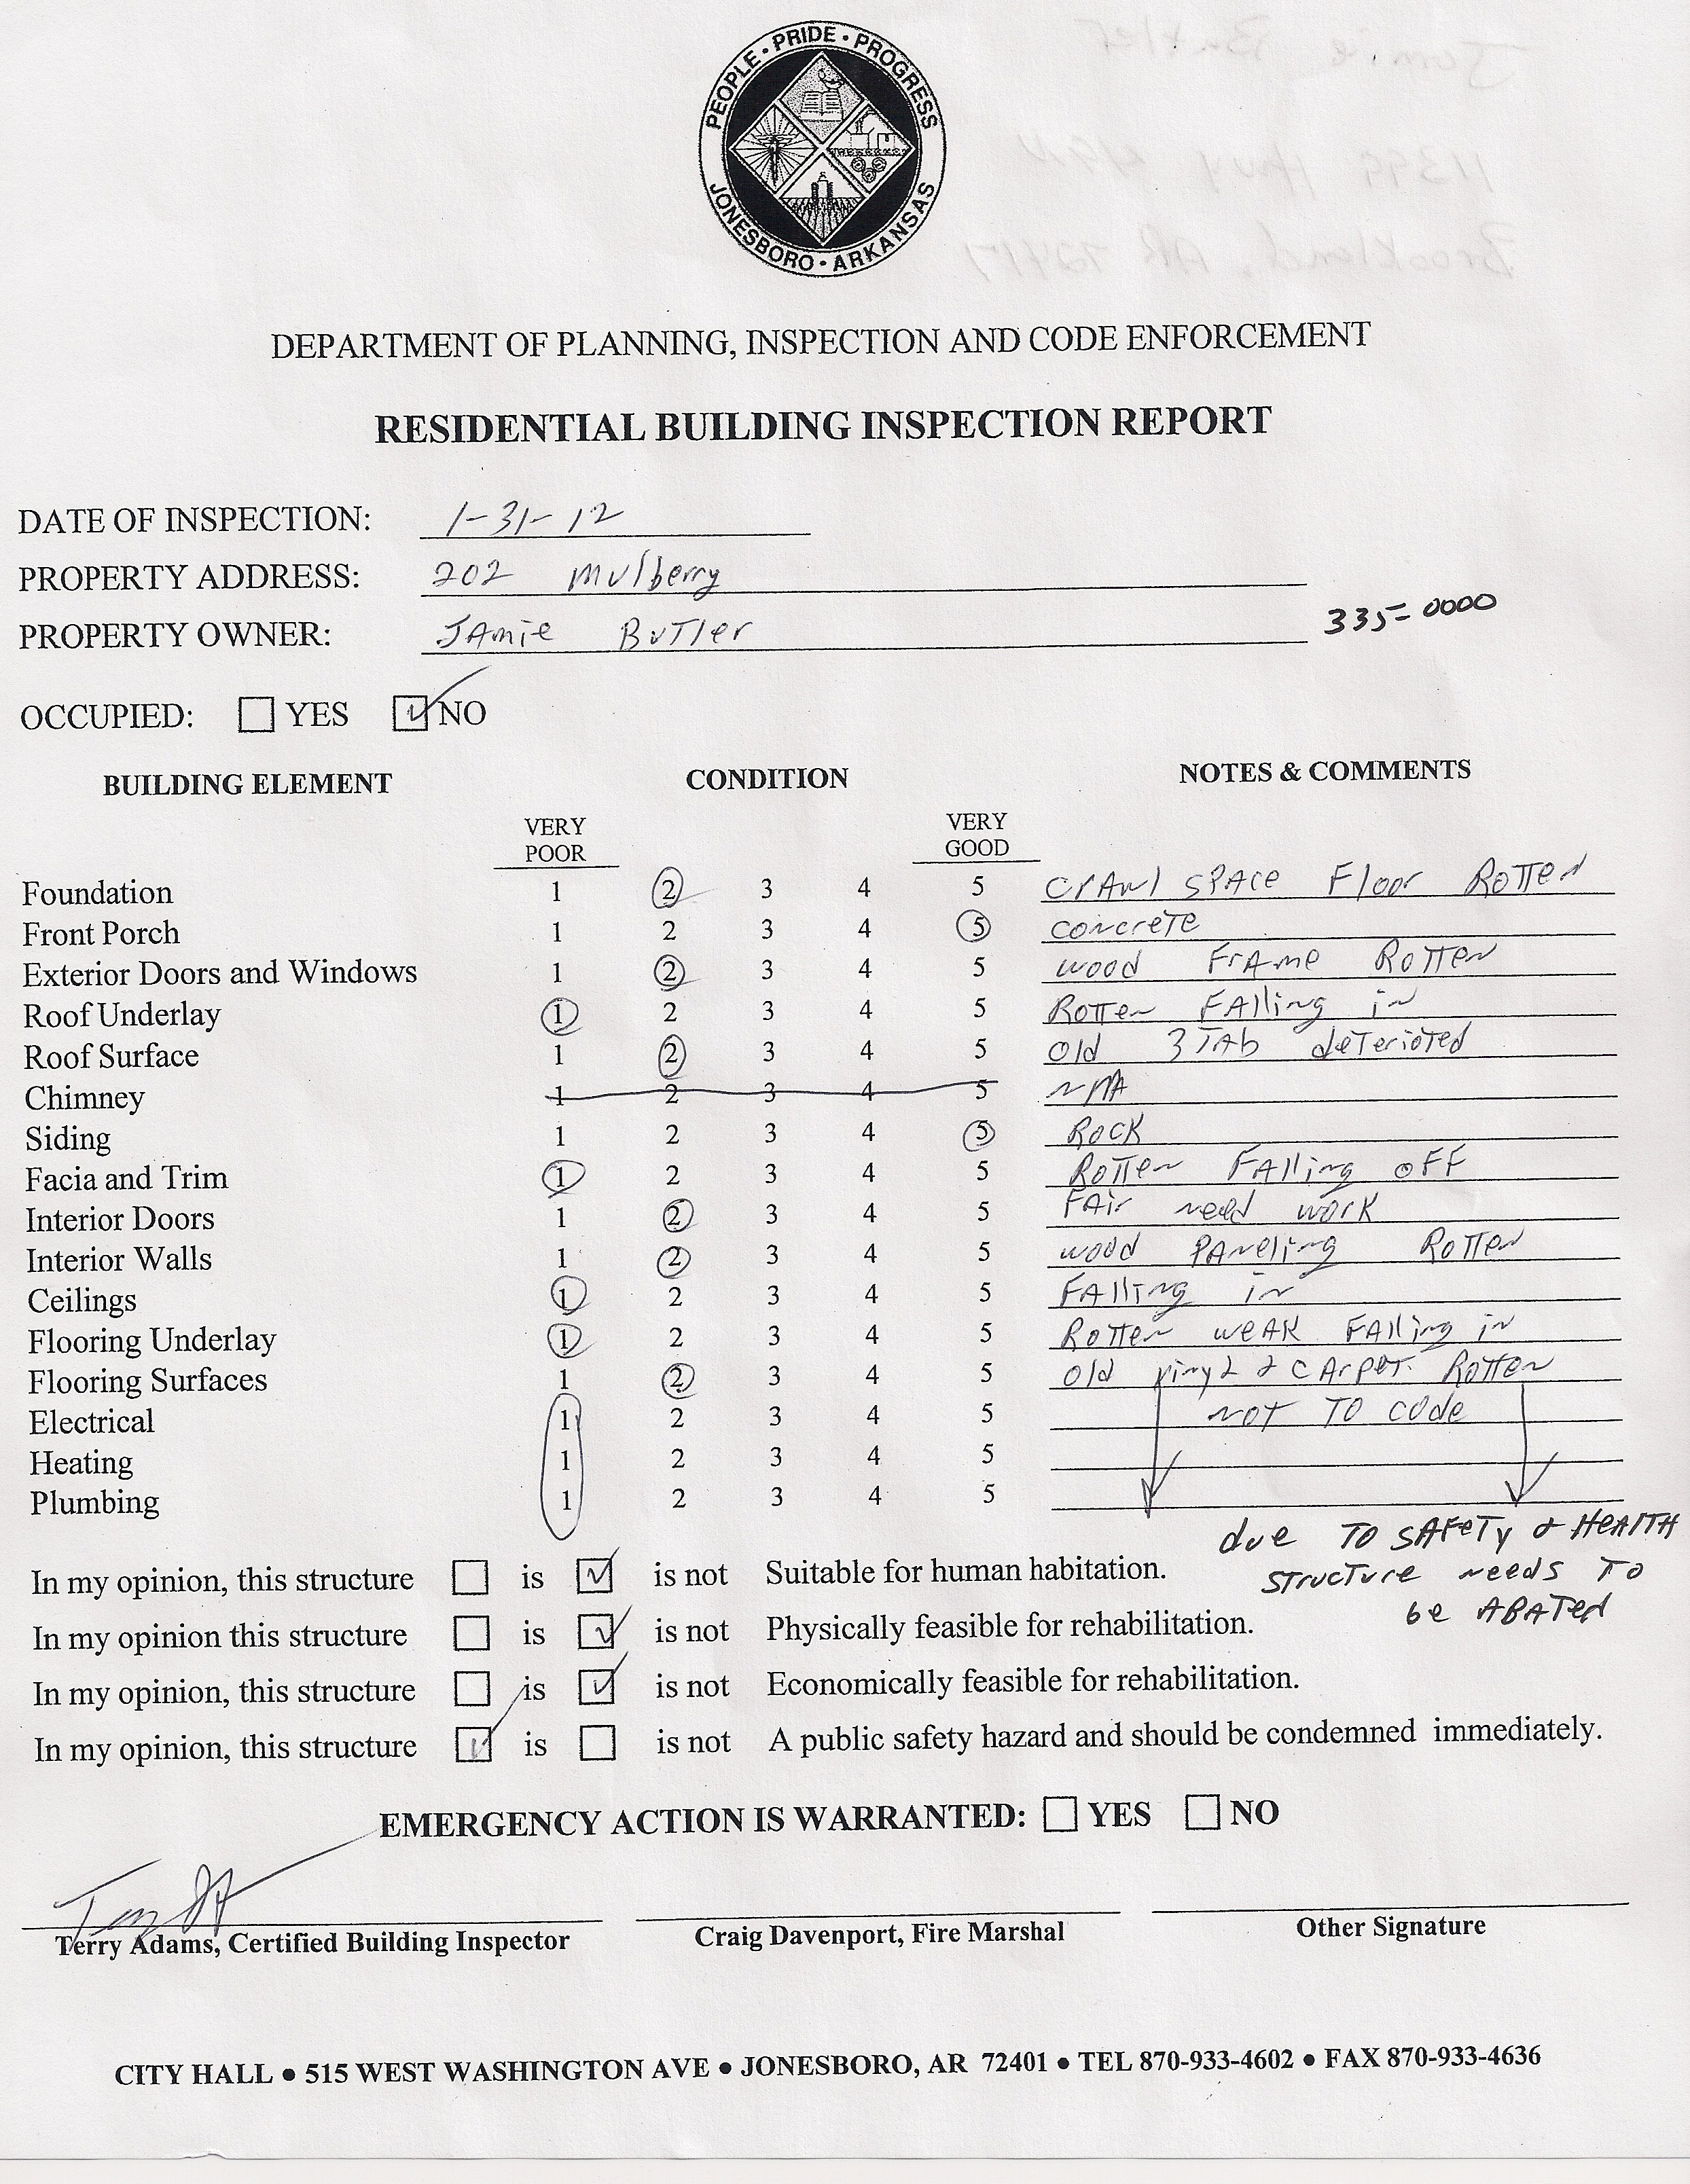 PEOPLE • PRIDE • PROGRESS
JONESBORO • ARKANSAS
DEPARTMENT OF PLANNING, INSPECTION AND CODE ENFORCEMENT
RESIDENTIAL BUILDING INSPECTION REPORT
DATE OF INSPECTION: 1-31-12
PROPERTY ADDRESS: 202 Mulberry
PROPERTY OWNER: JAmie BuTler 335-0000
OCCUPIED: YES NO
BUILDING ELEMENT CONDITION NOTES & COMMENTS
VERY POOR VERY GOOD
Foundation 1 2 3 4 5 CrAwl SPACe Floor RoTTen
Front Porch 1 2 3 4 5 concreTe
Exterior Doors and Windows 1 2 3 4 5 wood FrAme RoTTen
Roof Underlay 1 2 3 4 5 RoTTen FAlling in
Roof Surface 1 2 3 4 5 Old 3 TAb deTerioTed
Chimney 1 2 3 4 5 N/A
Siding 1 2 3 4 5 Rock
Facia and Trim 1 2 3 4 5 RoTTen FAlling oFF
Interior Doors 1 2 3 4 5 FAir need work
Interior Walls 1 2 3 4 5 wood PAneling RoTTen
Ceilings 1 2 3 4 5 FAlling in
Flooring Underlay 1 2 3 4 5 RoTTen weAk FAlling in
Flooring Surfaces 1 2 3 4 5 Old vinyl & cArpet. RoTTen
Electrical 1 2 3 4 5 NOT TO Code
Heating 1 2 3 4 5
Plumbing 1 2 3 4 5
due TO SAFeTy & HeAlTH
STrucTure needs To
be ABATed
In my opinion, this structure is is not Suitable for human habitation.
In my opinion this structure is is not Physically feasible for rehabilitation.
In my opinion, this structure is is not Economically feasible for rehabilitation.
In my opinion, this structure is is not A public safety hazard and should be condemned immediately.
EMERGENCY ACTION IS WARRANTED: YES NO
Terry Adams, Certified Building Inspector Craig Davenport, Fire Marshal Other Signature
CITY HALL • 515 WEST WASHINGTON AVE • JONESBORO, AR 72401 • TEL 870-933-4602 • FAX 870-933-4636